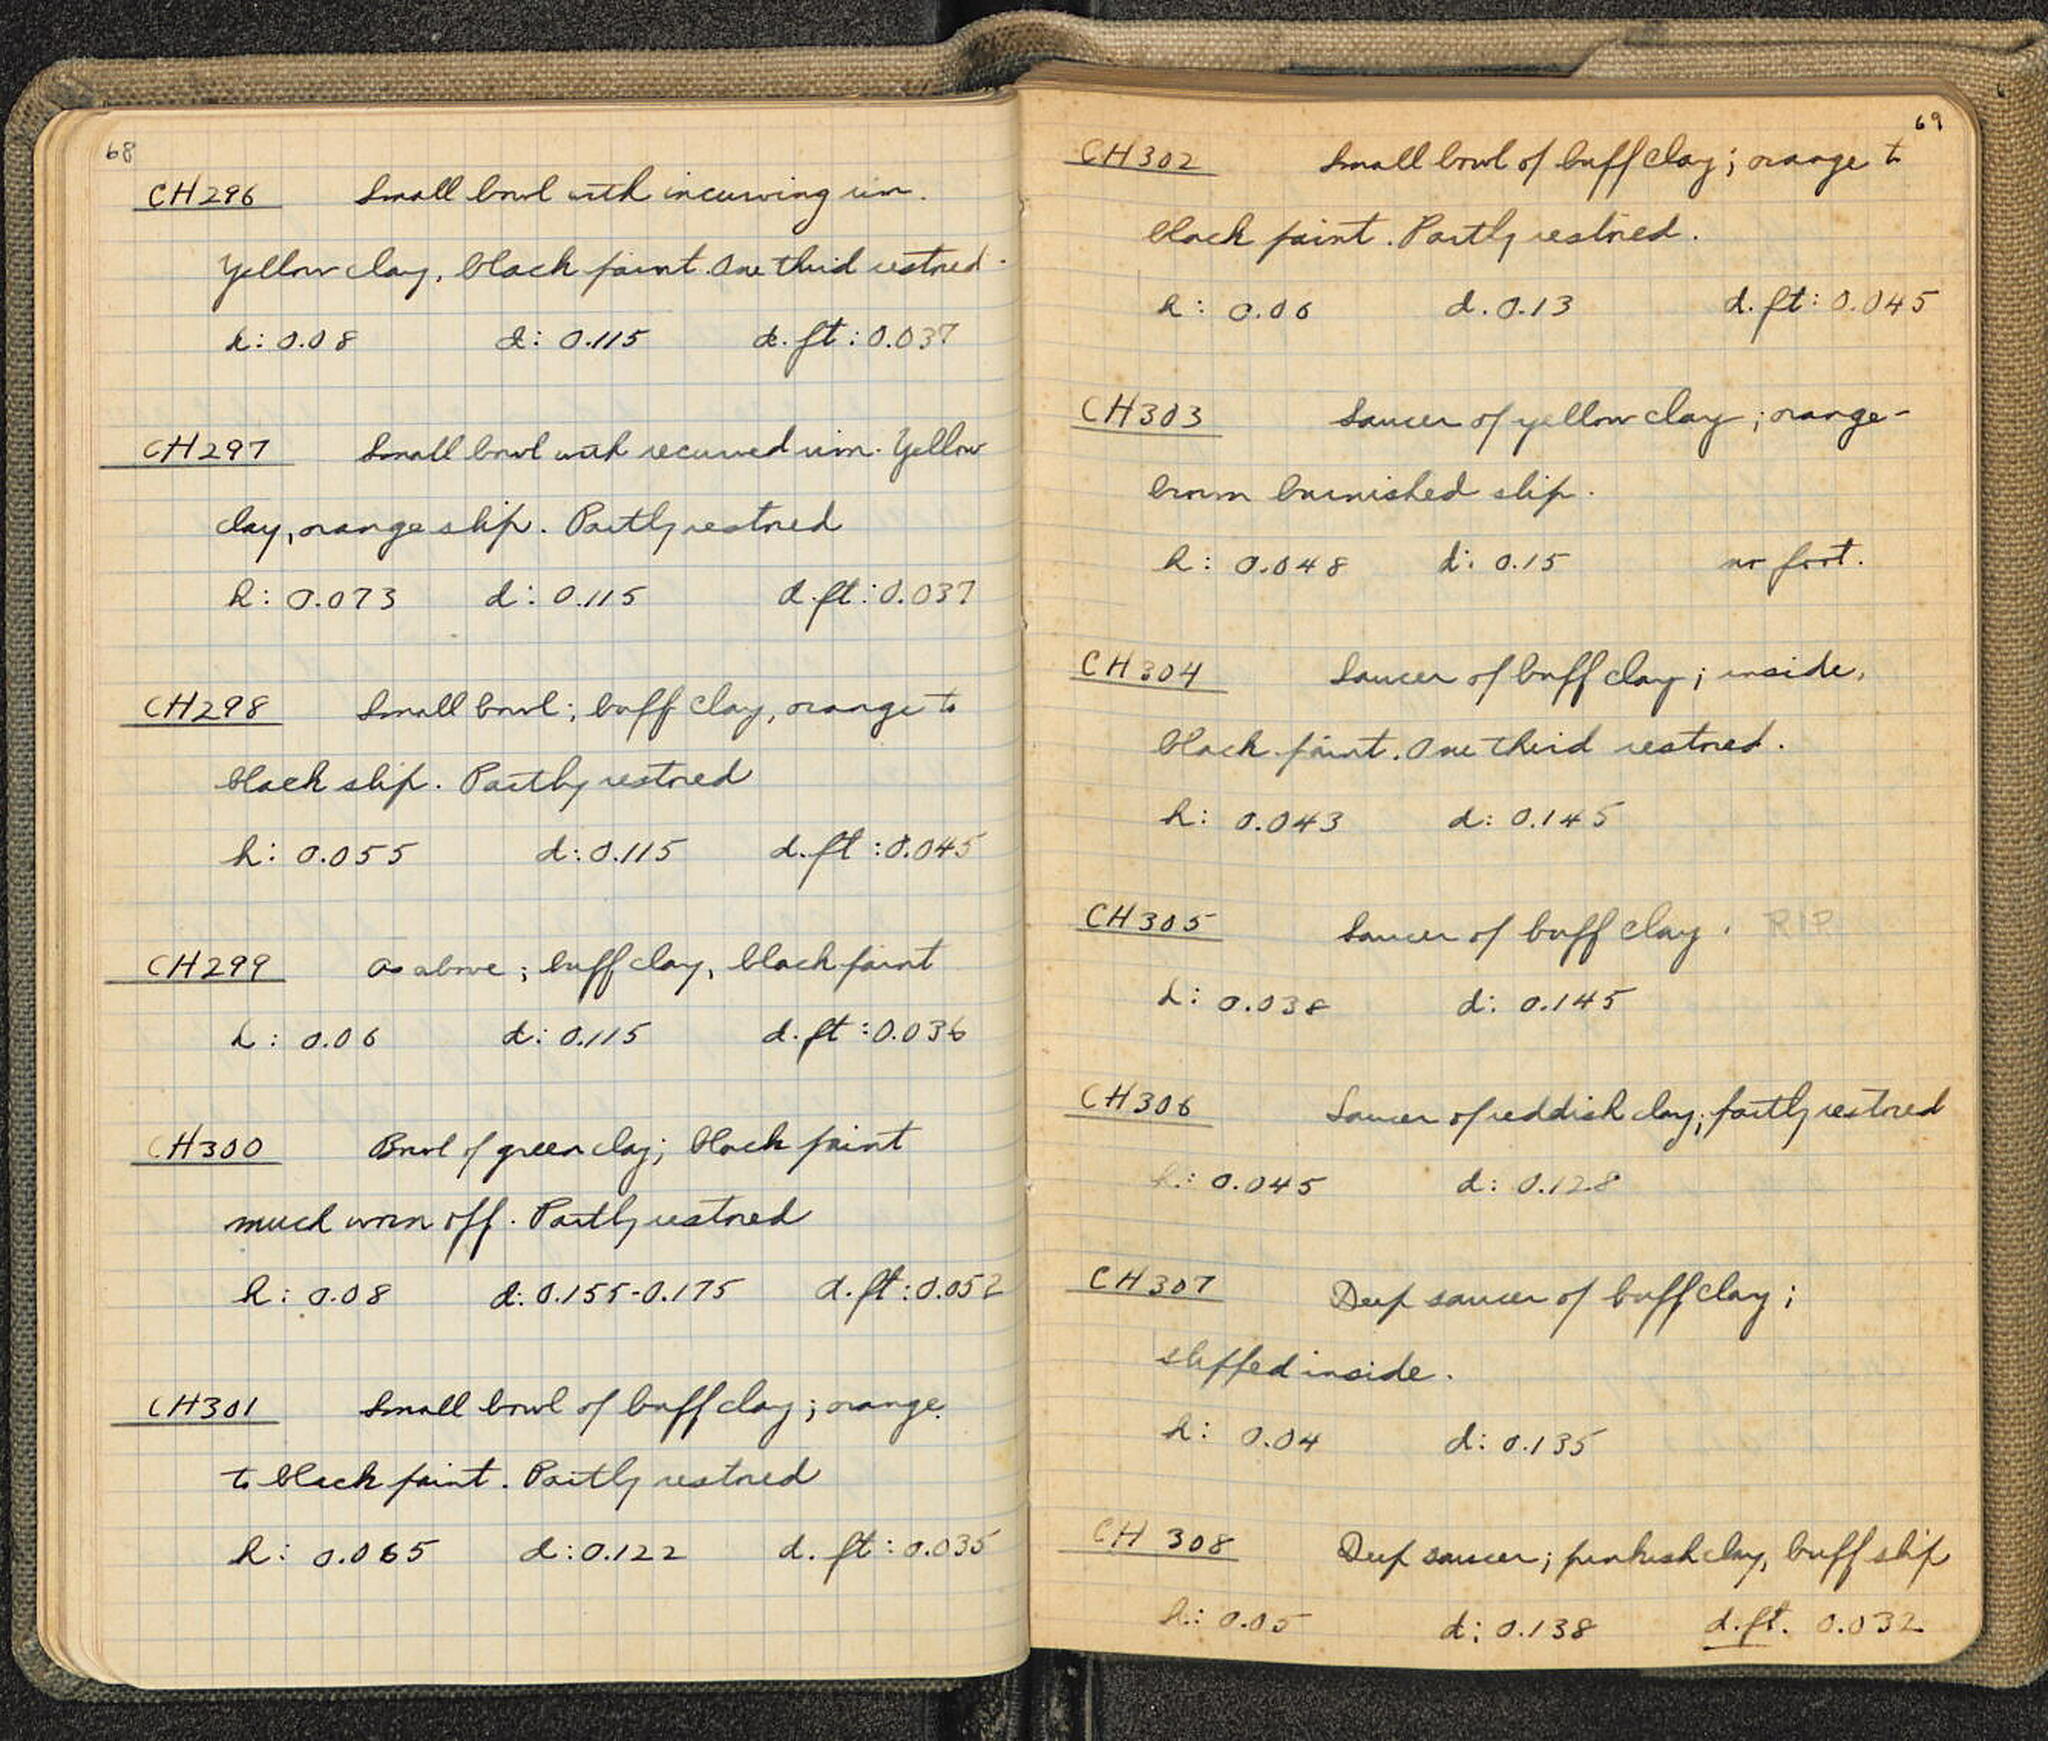 68
CH296 Small bowl with incurving rim.
Yellow clay, black paint. One third restored.
h: 0.08 d: 0.115 d. ft: 0.037
CH297 Small bowl with recurved rim. Yellow
clay, orange slip. Partly restored
h: 0.073 d: 0.115 d. ft: 0.037
CH298 Small bowl; buff clay, orange to
black slip. Partly restored
h: 0.055 d: 0.115 d. ft: 0.045
CH299 As above; buff clay, black paint
h: 0.06 d: 0.115 d. ft: 0.036
CH300 Bowl of green clay; black paint
much worn off. Partly restored
h: 0.08 d: 0.155-0.175 d. ft: 0.052
CH301 Small bowl of buff clay; orange
to black paint. Partly restored
h: 0.065 d: 0.122 d. ft: 0.035
69
CH302 Small bowl of buff clay; orange to
black paint. Partly restored.
h: 0.06 d. 0.13 d. ft: 0.045
CH303 Saucer of yellow clay; orange-
brown burnished slip.
h: 0.048 d: 0.15 no foot.
CH304 Saucer of buff clay; inside,
black paint. One third restored.
h: 0.043 d: 0.145
CH305 Saucer of buff clay. RIP
h: 0.038 d: 0.145
CH306 Saucer of reddish clay; partly restored
h: 0.045 d: 0.128
CH307 Deep saucer of buff clay;
slipped inside.
h: 0.04 d: 0.135
CH 308 Deep saucer; pinkish clay, buff slip
h: 0.05 d: 0.138 d. ft. 0.032